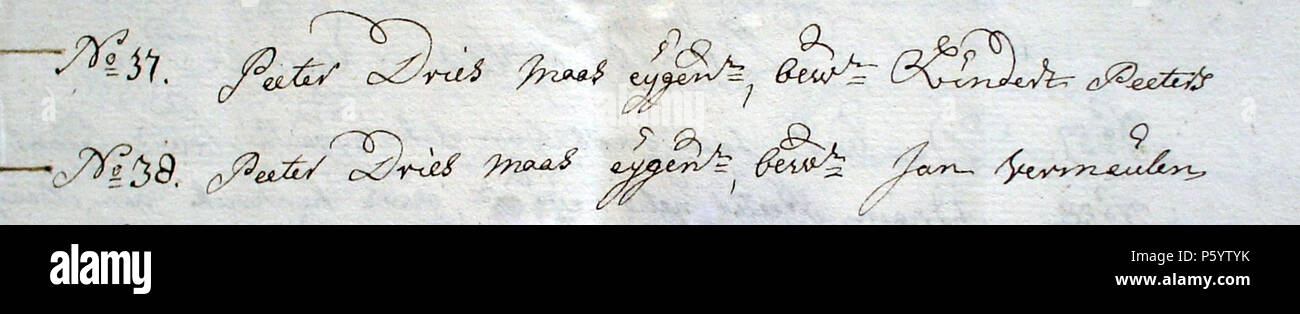 No 37. Peeter Dries Maas eygenr, bewr Peeters
No 38. Peeter Dries Maas eygenr, bewr Jan Vermeulen
alamy stock photo
P5YTYK
www.alamy.com